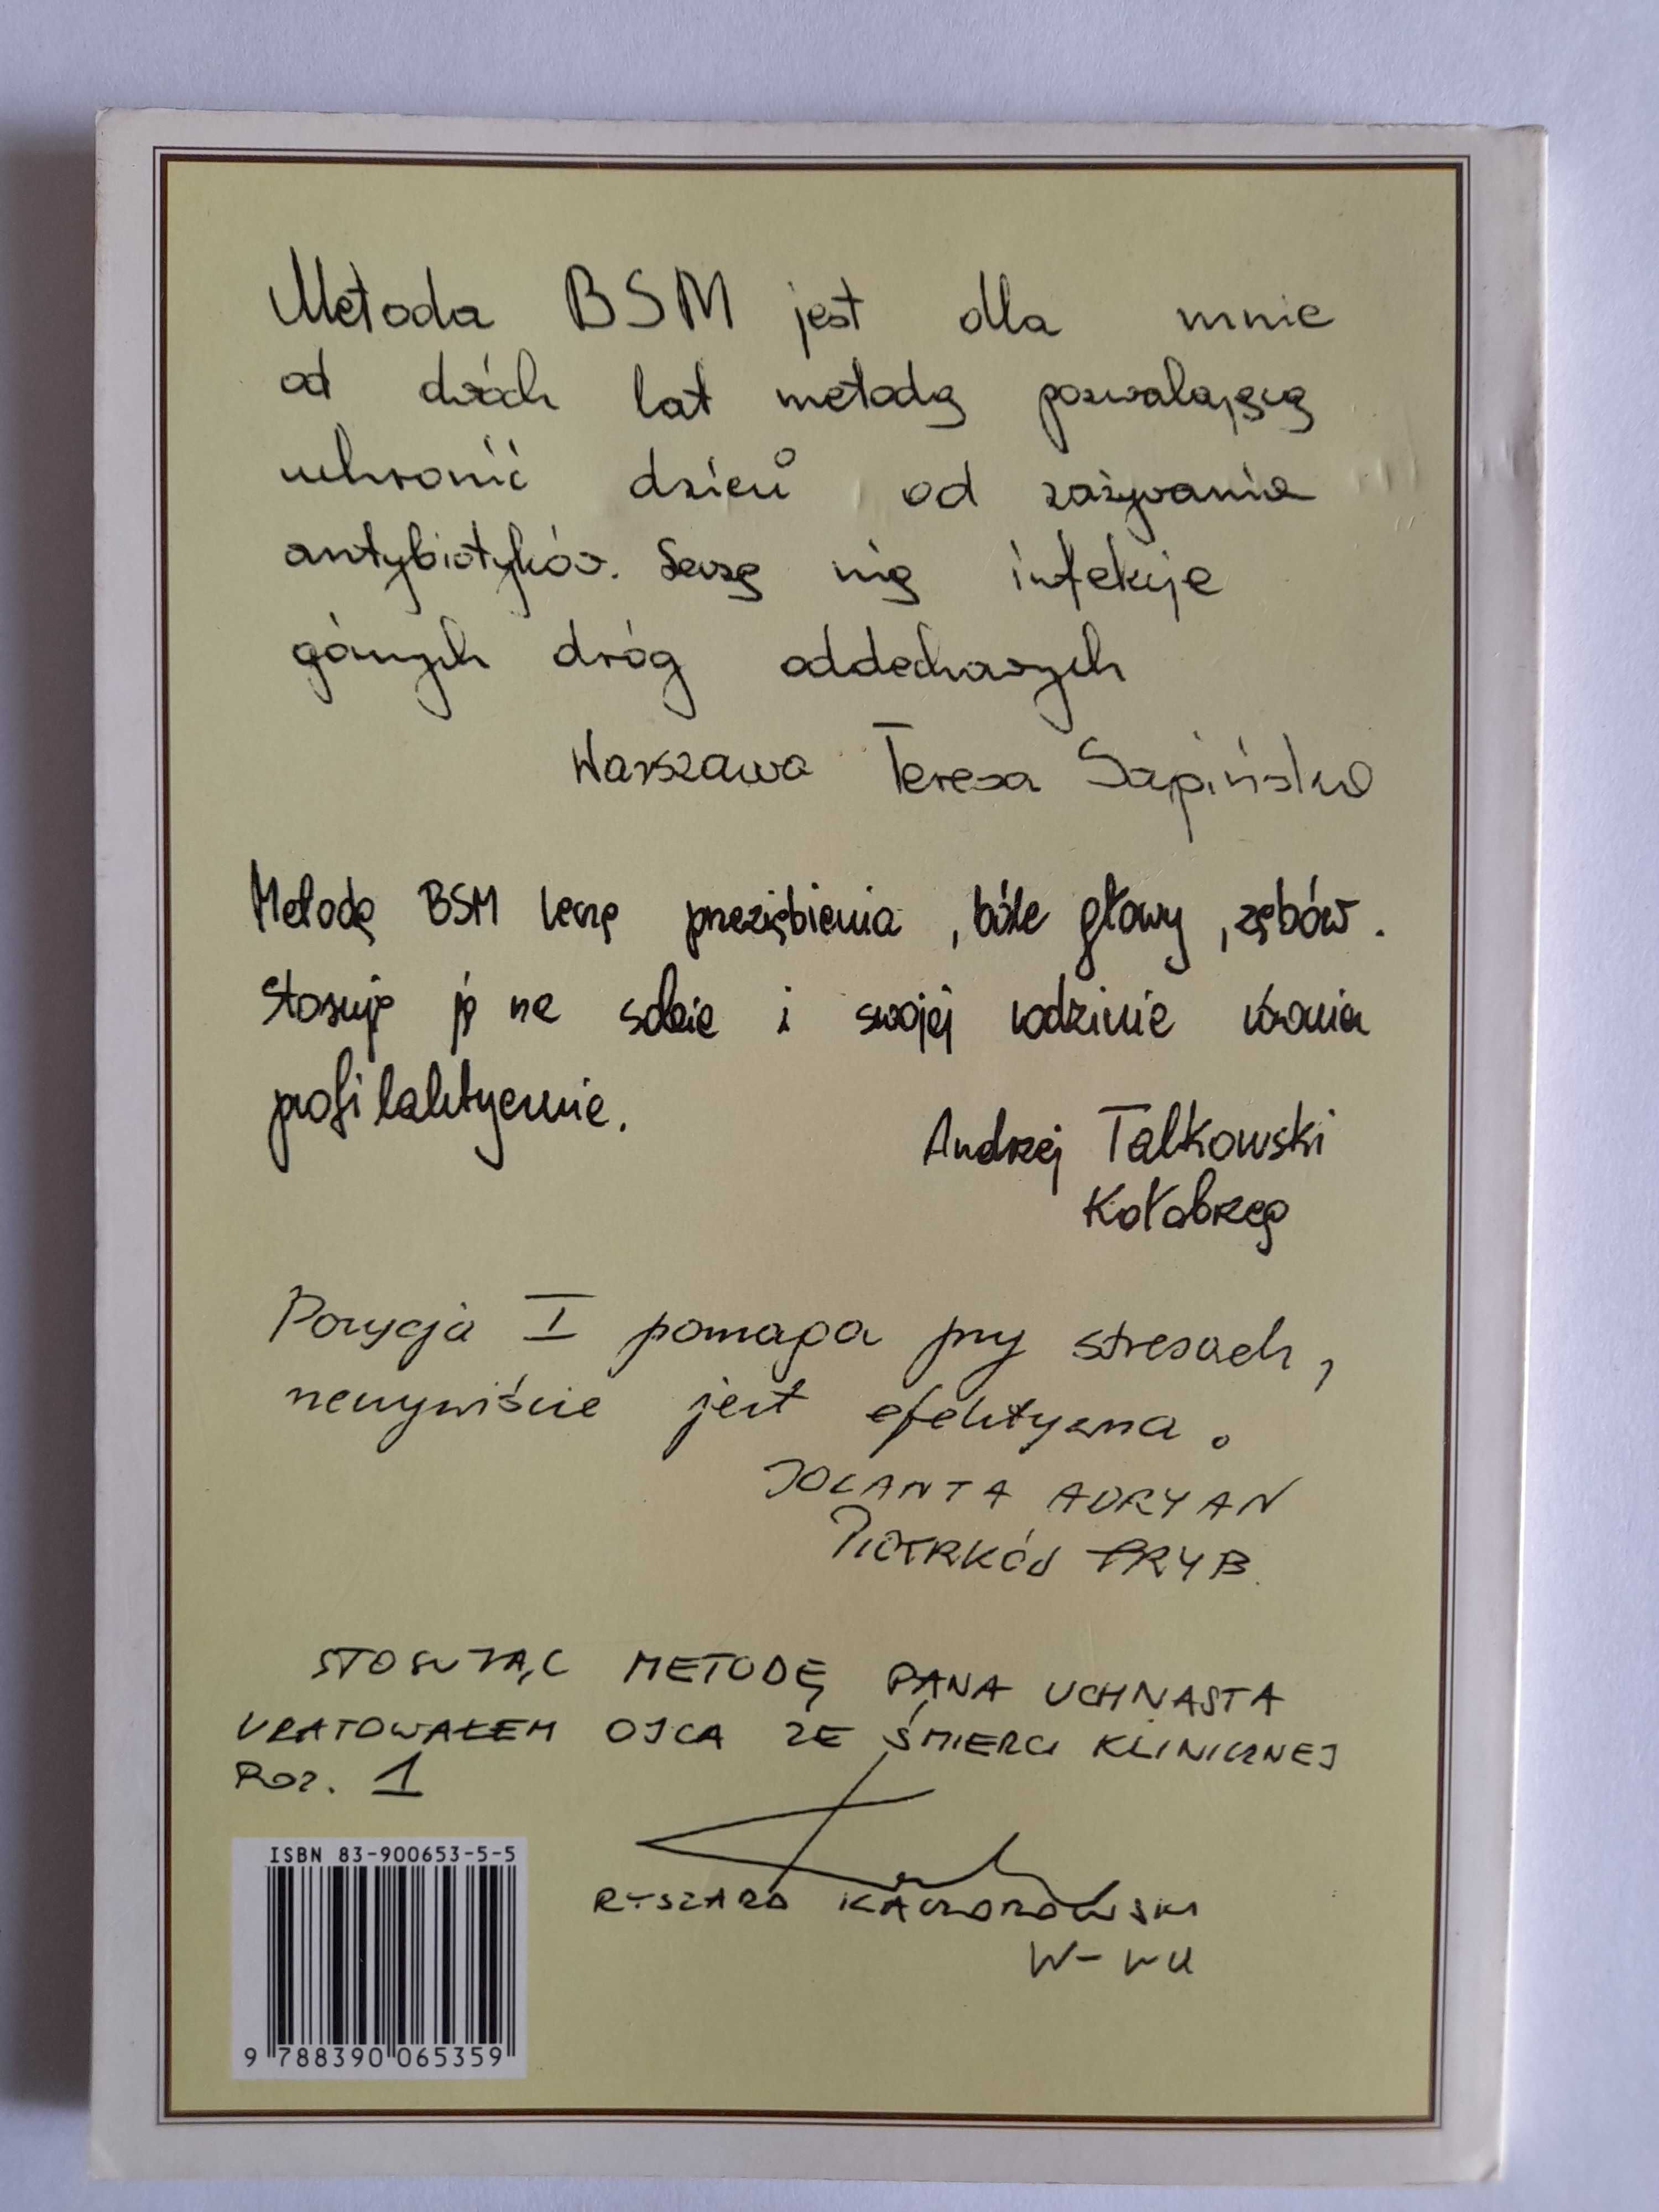 Metoda BSM jest dla mnie
od dwóch lat metodą pozwalającą
uchronić dzieci od zażywania
antybiotyków. Leczę nią infekcje
górnych dróg oddechowych
Warszawa Teresa Sapińska
Metodą BSM leczę przeziębienia, bóle głowy, zębów.
Stosuję ją na sobie i swojej rodzinie również
profilaktycznie.
Andrzej Talkowski
Kołobrzeg
Pozycja I pomaga przy stresach,
rzeczywiście jest efektywna.
JOLANTA ADRYAN
PIOTRKÓW TRYB.
STOSUJĄC METODĘ PANA UCHNASTA
URATOWAŁEM OJCA ZE ŚMIERCI KLINICZNEJ
POZ. 1
ISBN 83-900653-5-5
RYSZARD KACZOROWSKI
W-wa
9 788390 065359